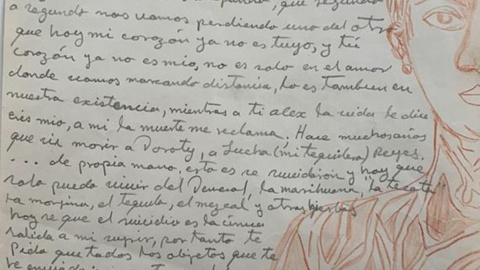 que segundo
a segundo nos vamos perdiendo uno del otro
que hoy mi corazón ya no es tuyo, y tu
corazón ya no es mio, no es solo en el amor
donde vamos marcando distancia, lo es tambien en
nuestra existencia, mientras a ti alex la vida le dice
eres mio, a mi la muerte me reclama. Hace muchos años
que vi morir a Doroty, a Lucha (mi tequilera) Reyes,
... de propia mano. esto es se suicidaron y hay que
solo puedo vivir del Demerol, la marihuana, "la tecata"
la morfina, el tequila, el mezcal y otras hierbas
hoy se que el suicidio es la única
salida a mi, por tanto te
pido que todos los objetos que te